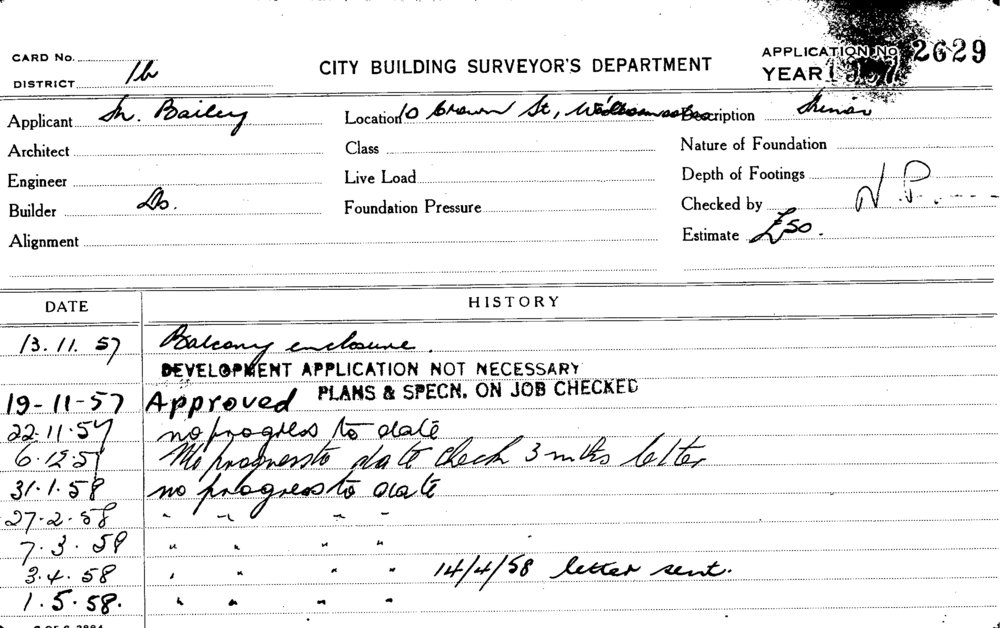 CARD No.
DISTRICT 1b
CITY BUILDING SURVEYOR'S DEPARTMENT
APPLICATION No 2629
YEAR 1957
Applicant Bailey
Location 10 Brown St, Description
Architect
Class
Nature of Foundation
Engineer
Live Load
Depth of Footings
Builder Do.
Foundation Pressure
Checked by N.P.
Alignment
Estimate £50.
DATE HISTORY
13.11.57 Balcony enclosure.
DEVELOPMENT APPLICATION NOT NECESSARY
PLANS & SPECN. ON JOB CHECKED
19-11-57 Approved
22.11.57 no progress to date
6.12.57 No progress to date check 3 mths letter
31.1.58 no progress to date
27.2.58 " " " "
7.3.58 " " " "
3.4.58 " " " " 14/4/58 letter sent.
1.5.58. " " " "